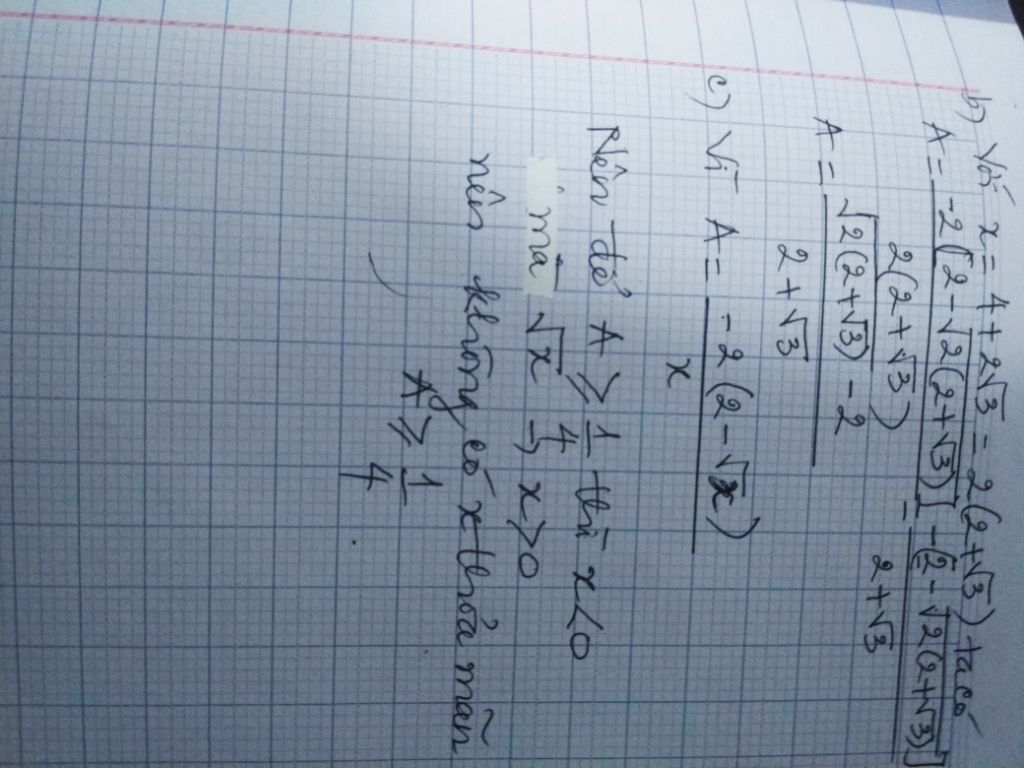 b) Với x = 4 + 2√3 = 2(2+√3) ta có
A = \frac{-2(2-√{2(2+√3)})}{2(2+√3)} = \frac{-(2-√{2(2+√3)})}{2+√3}
A = \frac{√{2(2+√3)} - 2}{2+√3}
c) Vì A = \frac{-2(2-√x)}{x}
Nên để A ⩾ \frac{1}{4} thì x < 0
mà √x → x > 0
nên không có x thỏa mãn
A ⩾ \frac{1}{4}